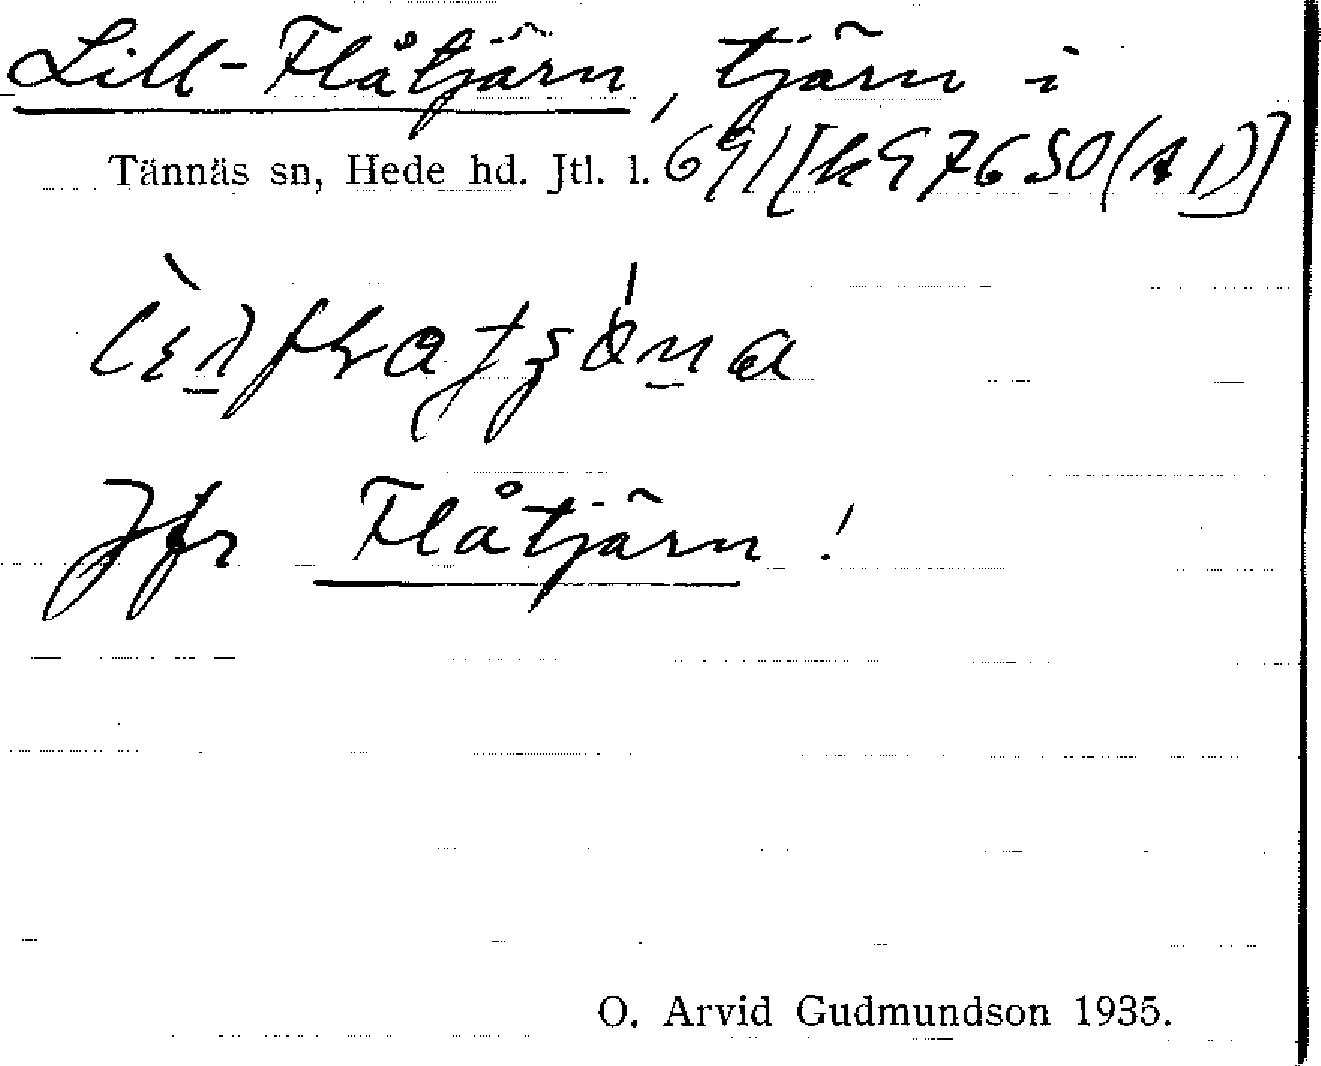 Lill-Flåtjärn, tjärn i
Tännäs sn, Hede hd. Jtl. l. 691 [k97650(A1)]
Jfr Flåtjärn!
O. Arvid Gudmundson 1935.